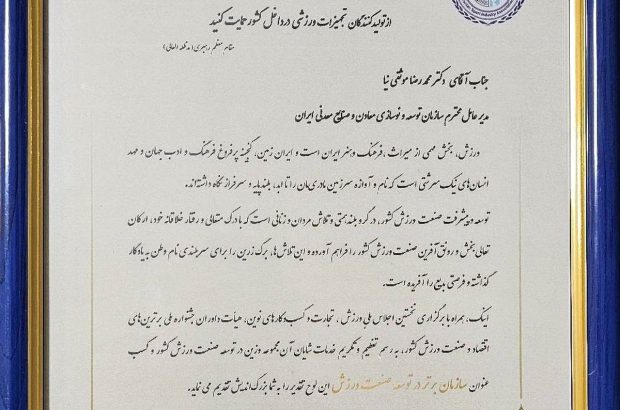 از تولیدکنندگان تجهیزات ورزشی در داخل کشور حمایت کنید
مقام معظم رهبری (مدظله العالی)
جناب آقای دکتر محمدرضا موثقی نیا
مدیرعامل محترم سازمان توسعه و نوسازی معادن و صنایع معدنی ایران
ورزش، بخش مهمی از میراث، فرهنگ و هنر ایران است و ایران زمین، گنجینه پرفروغ فرهنگ و ادب جهان و مهد
انسان‌های نیک سرشتی است که نام و آوازه سرزمین مادری‌مان را تا ابد، بلندپایه و سرفراز نگاه داشته‌اند.
توسعه و پیشرفت صنعت ورزش کشور، در گرو بلندهمتی و تلاش مردان و زنانی است که با درک متعالی و رفتار خلاقانه خود، ارکان
تعالی بخش و رونق آفرین صنعت ورزش کشور را فراهم آورده و این تلاش‌ها، برگ زرین را برای سربلندی نام وطن به یادگار
گذاشته و فرصتی بدیع را آفریده است.
اینک، همراه با برگزاری نخستین اجلاس ملی ورزش، تجارت و کسب‌وکارهای نوین، هیأت داوران جشنواره ملی برترین‌های
اقتصاد و صنعت ورزش کشور، به رسم تعظیم و تکریم خدمات شایان آن مجموعه وزین در توسعه صنعت ورزش کشور و کسب
عنوان سازمان برتر در توسعه صنعت ورزش این لوح تقدیر را به شما بزرگ اندیش تقدیم می نماید.